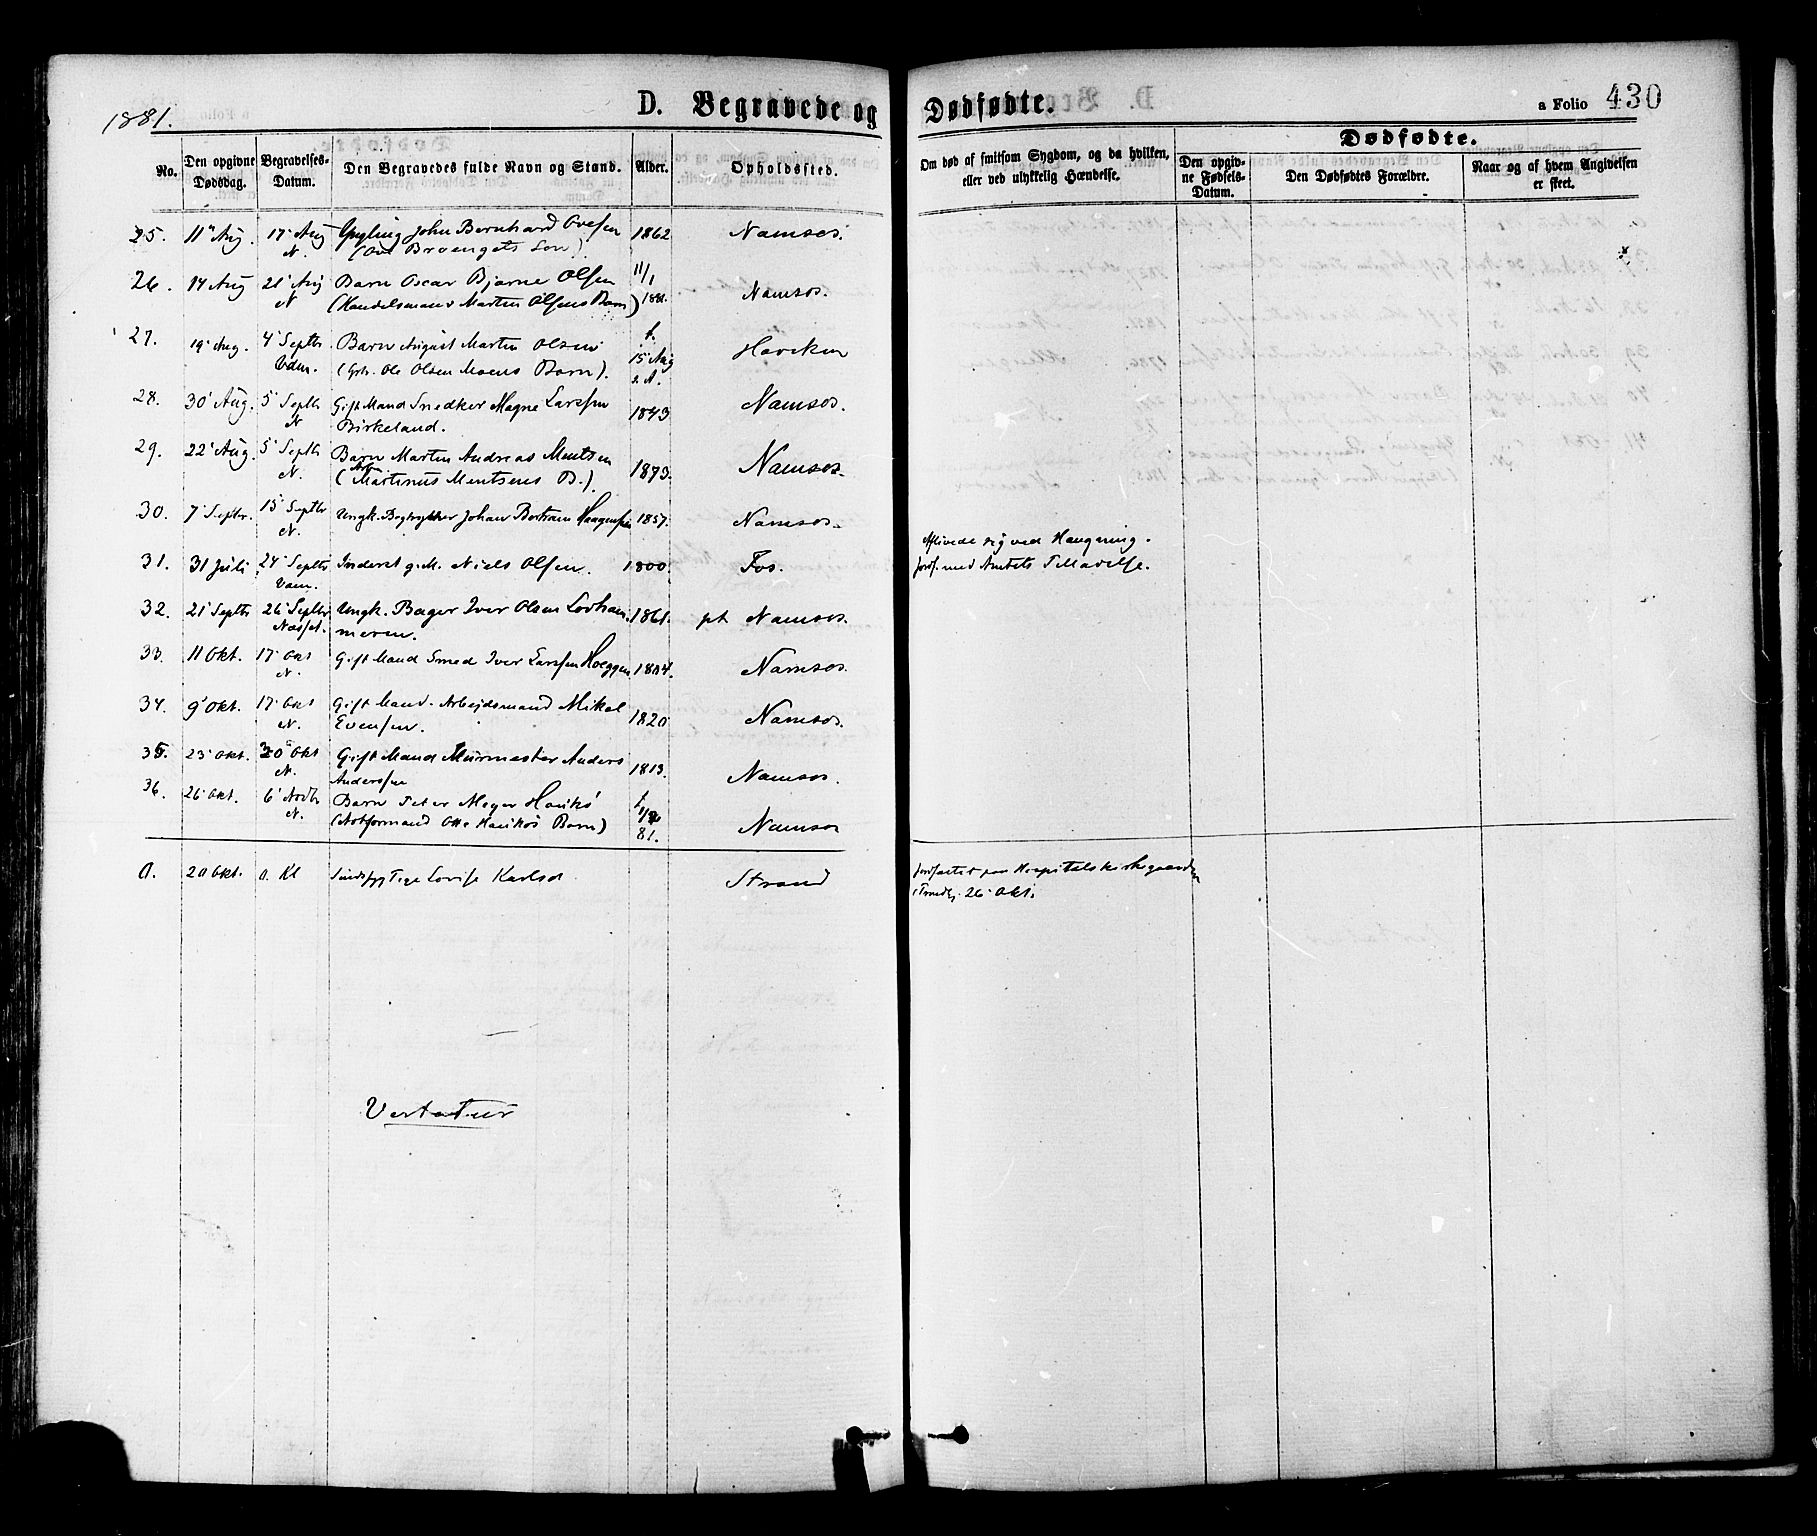 1881.
D. Begravede og Dødfødte.
a Folio 430
No.
Den opgivne Dødsdag.
Begravelses-Datum.
Den Begravedes fulde Navn og Stand.
Alder.
Opholdssted.
Om død af smitsom Sygdom, og da hvilken, eller ved ulykkelig Hændelse.
Dødfødte.
Den opgivne Fødsels-Datum.
Den Dødfødtes Forældre.
Naar og af hvem Angivelsen er skeet.
25. 11' Aug. 17' Aug N. Yngling John Bernhard Ovesen 1862 Namsos.
(Ove Braengets Søn).
26. 14 Aug 21' Aug N Barn Oscar Bjarne Olsen 11/1 1881. Namsos.
(Handelsmand Martin Olsens Barn)
27. 19' Aug. 4' Septbr Vdm. Barn August Martin Olsen f. 15 Aug s. A.
(Grb. Ole Olsen Moens Barn).
28. 30' Aug. 5' Septbr N Gift Mand Snedker Magne Larssen 1843 Namsos.
Birkeland.
29. 22' Aug. 5' Septbr N. Barn Martin Andreas Mentsen 1873. Namsos.
(Arb Martinus Mentsens B.).
30. 7' Septbr. 15' Septbr N. Ungk. Bogtrykker Johan Bertram Haagensen 1857. Namsos.
31. 31 Juli 24' Septbr Inderst g.M. Niels Olsen. 1800. Fos.
Aflivede sig ved Hængning.
Jordf. med Amtets Tilladelse.
32. 21' Septbr 26' Septbr Næsset. Ungk. Bager Iver Olsen Lovham- 1861. pt Namsos.
meren.
33. 11 Okt. 17' Okt N. Gift Mand Smed Iver Larssen Hoeggen Namsos.
34. 9' Okt. 17' Okt N. Gift Mand. Arbejdsmand Mikal 1820 Namsos.
Evensen.
35. 23' Okt. 30' Okt N. Gift Mand Murmester Anders 1813. Namsos.
Anderssen
36. 26' Okt. 6' Novbr N. Barn Peter Meyer Havikø f. 81. Namsos
(Notformand Otte Havikøs Barn)
a. 20 Okt. a. Kl Sindssyg Pige Lovise Karlsd. Strand
Jordfæstet paa Hospitalskirkegaarden
i Trondhj. 26' Okt.
Vertatur